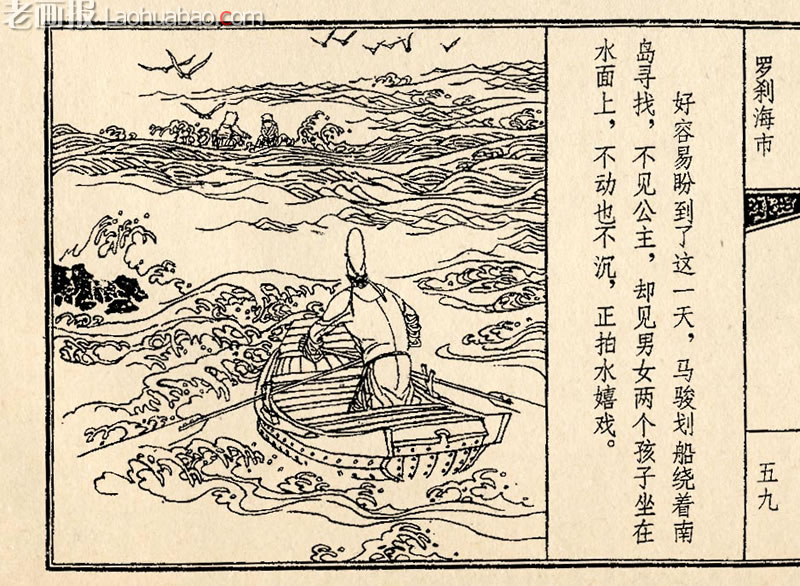 老画报
Laohuabao.com
罗刹海市
好容易盼到了这一天，马骏划船绕着南
岛寻找，不见公主，却见男女两个孩子坐在
水面上，不动也不沉，正拍水嬉戏。
五九